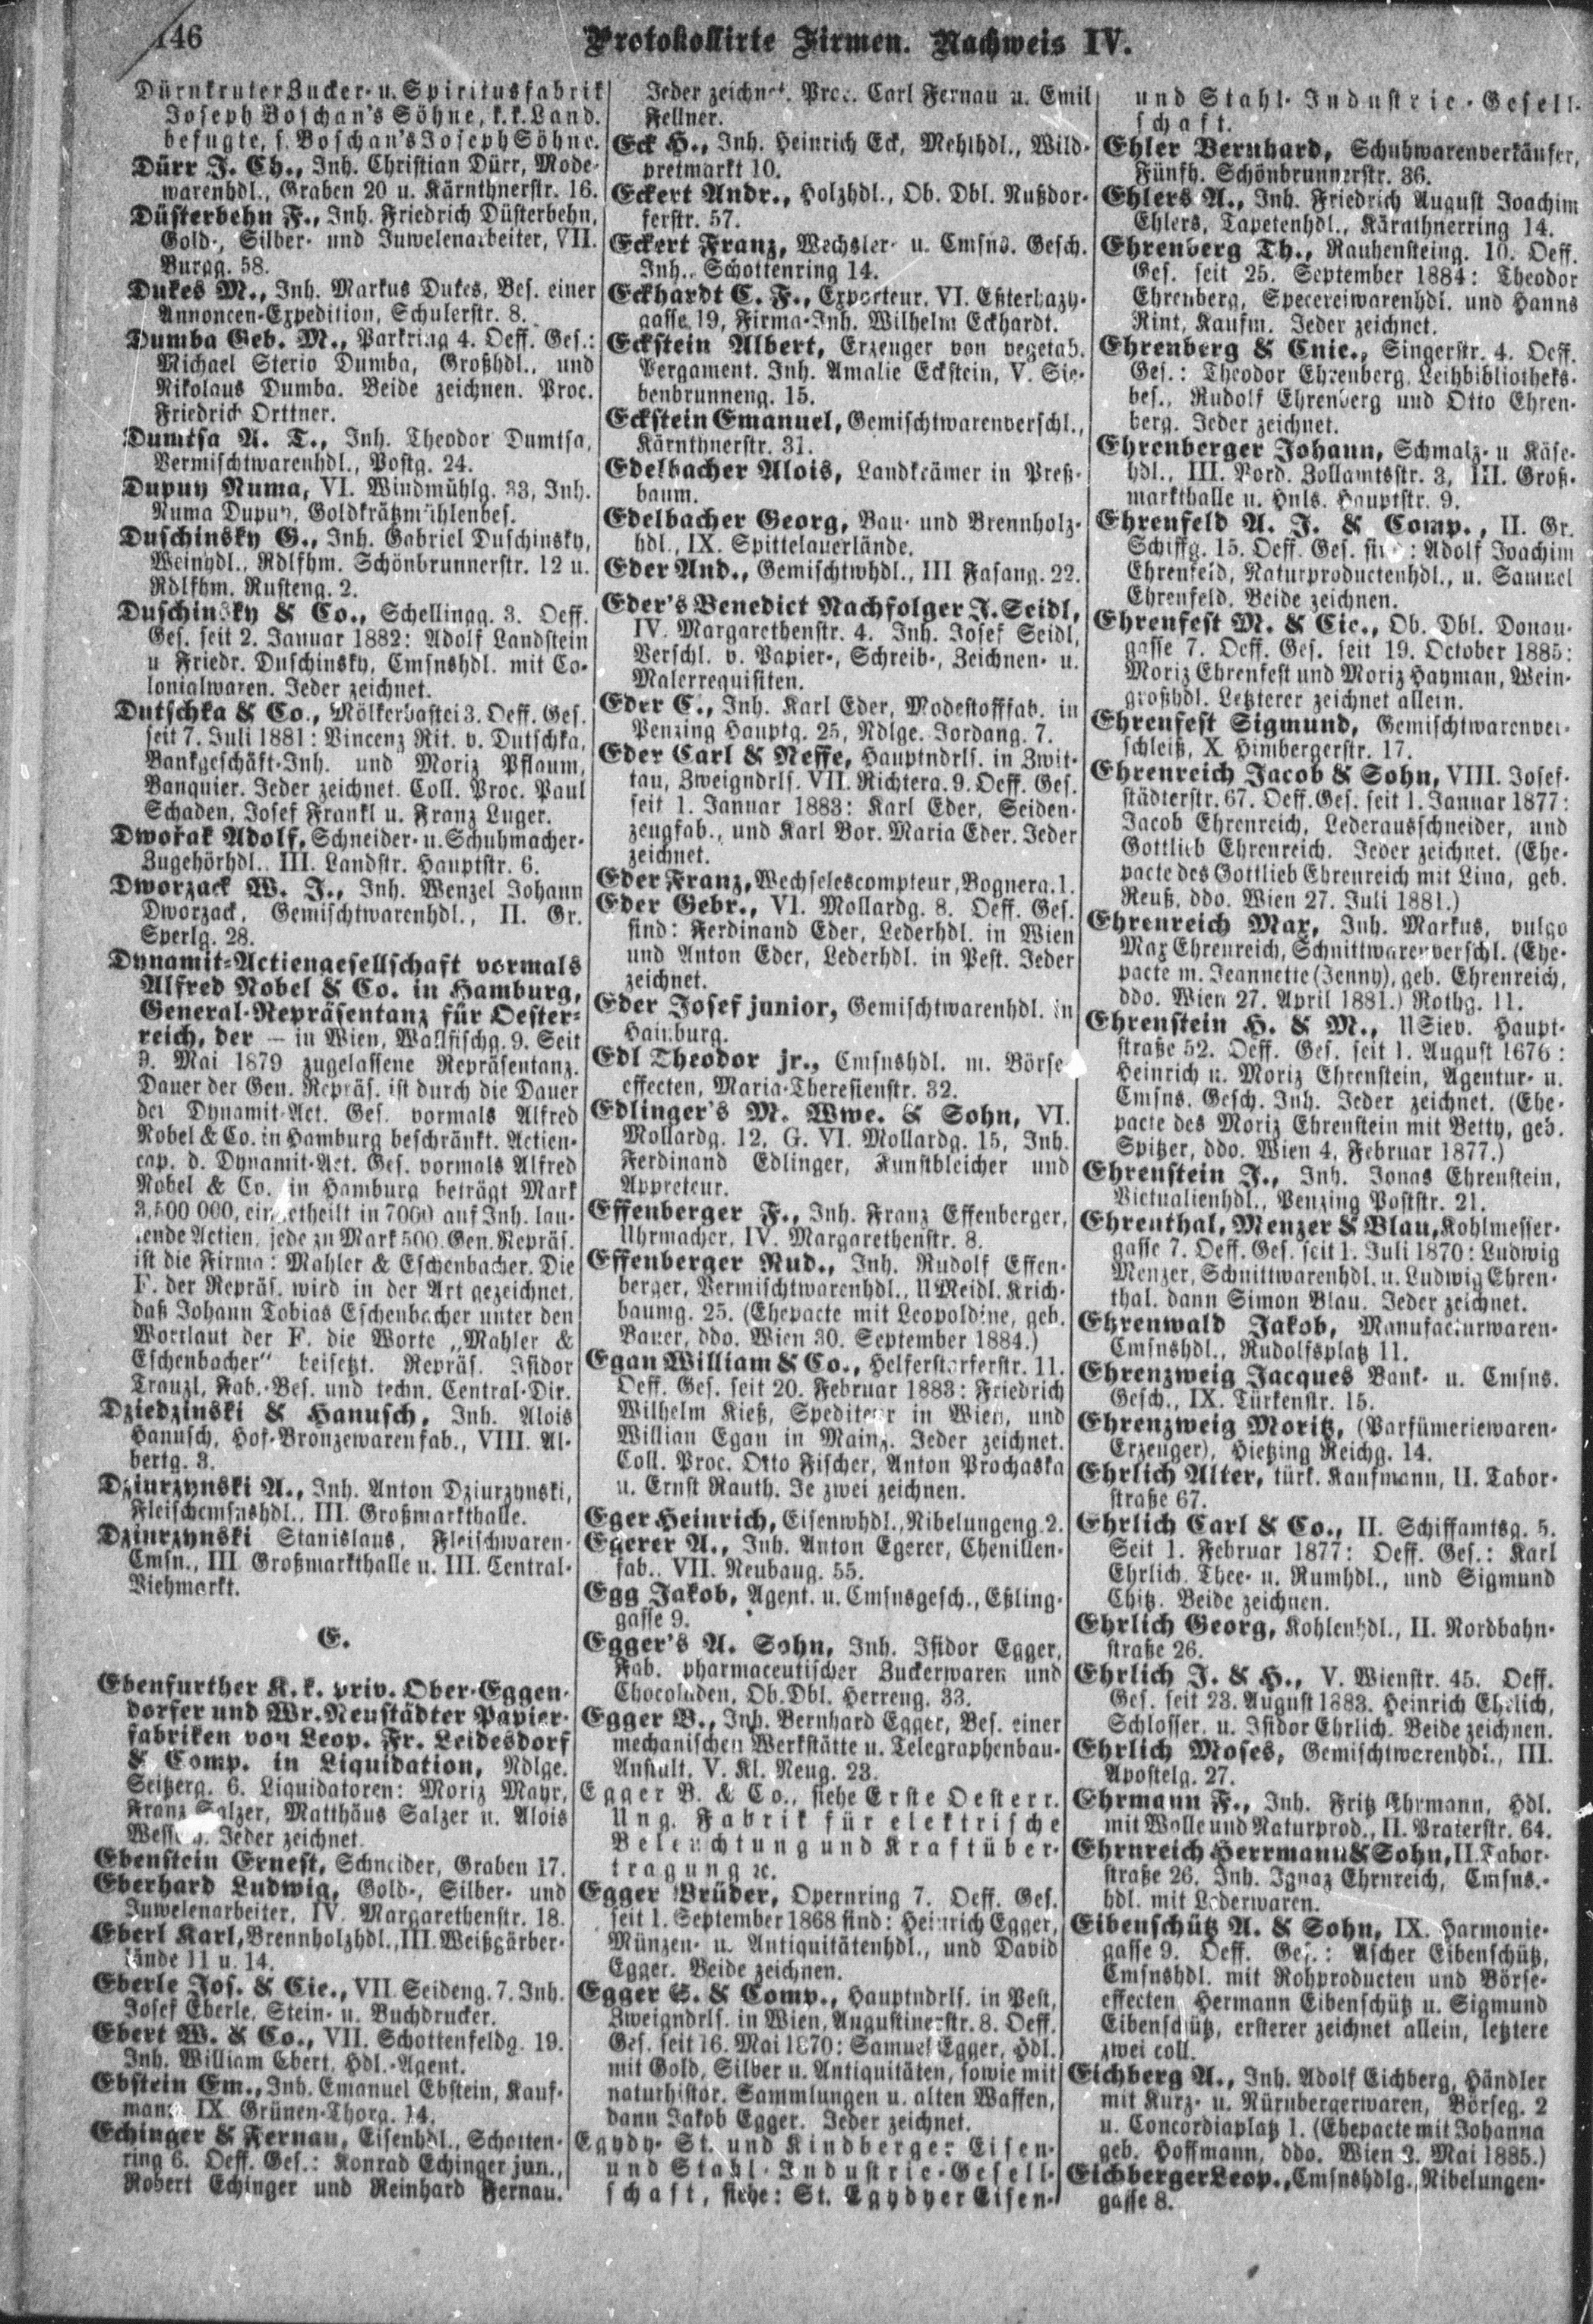 146
Protokollirte Firmen. Nachweis IV.
Dürnkruter Zucker- u. Spiritusfabrik
Joseph Boschan's Söhne, k. k. Land.
befugte, s. Boschan's Joseph Söhne.
Dürr J. Ch., Inh. Christian Dürr, Mode-
warenhdl., Graben 20 u. Kärnthnerstr. 16.
Düsterbehn F., Inh. Friedrich Düsterbehn,
Gold-, Silber- und Juwelenarbeiter, VII.
Burgg. 58.
Dukes M., Inh. Markus Dukes, Bes. einer
Annoncen-Expedition, Schulerstr. 8.
Dumba Geb. M., Parkring 4. Oeff. Ges.:
Michael Sterio Dumba, Großhdl., und
Nikolaus Dumba. Beide zeichnen. Proc.
Friedrich Orttner.
Dumtsa A. T., Inh. Theodor Dumtsa,
Vermischtwarenhdl., Postg. 24.
Dupuy Numa, VI. Windmühlg. 33, Inh.
Numa Dupuy, Goldkrätzmühlenbes.
Duschinsky G., Inh. Gabriel Duschinsky,
Weinhdl., Rdlfhm. Schönbrunnerstr. 12 u.
Rdlfhm. Rusteng. 2.
Duschinsky & Co., Schellingg. 3. Oeff.
Ges. seit 2. Januar 1882: Adolf Landstein
u Friedr. Duschinsky, Cmsnshdl. mit Co-
lonialwaren. Jeder zeichnet.
Dutschka & Co., Mölkerbastei 3. Oeff. Ges.
seit 7. Juli 1881: Vincenz Rit. v. Dutschka,
Bankgeschäft-Inh. und Moriz Pflaum,
Banquier. Jeder zeichnet. Coll. Proc. Paul
Schaden, Josef Frankl u. Franz Luger.
Dwořak Adolf, Schneider- u. Schuhmacher-
Zugehörhdl., III. Landstr. Hauptstr. 6.
Dworzack W. J., Inh. Wenzel Johann
Dworzack, Gemischtwarenhdl., II. Gr.
Sperlg. 28.
Dynamit-Actiengesellschaft vormals
Alfred Nobel & Co. in Hamburg,
General-Repräsentanz für Oester-
reich, der — in Wien, Wallfischg. 9. Seit
9. Mai 1879 zugelassene Repräsentanz.
Dauer der Gen. Repräs. ist durch die Dauer
der Dynamit-Act. Ges. vormals Alfred
Nobel & Co. in Hamburg beschränkt. Actien-
cap. d. Dynamit-Act. Ges. vormals Alfred
Nobel & Co. in Hamburg beträgt Mark
3,500 000, eingetheilt in 7000 auf Inh. lau-
tende Actien, jede zu Mark 500. Gen. Repräs.
ist die Firma: Mahler & Eschenbacher. Die
F. der Repräs. wird in der Art gezeichnet,
daß Johann Tobias Eschenbacher unter den
Wortlaut der F. die Worte „Mahler &
Eschenbacher" beisetzt. Repräs. Isidor
Trauzl, Fab.-Bes. und techn. Central-Dir.
Dziedzinski & Hanusch, Inh. Alois
Hanusch, Hof-Bronzewarenfab., VIII. Al-
bertg. 3.
Dziurzynski A., Inh. Anton Dziurzynski,
Fleischcmsnshdl., III. Großmarkthalle.
Dziurzynski Stanislaus, Fleischwaren-
Cmsn., III Großmarkthalle u. III. Central-
Viehmarkt.
E.
Ebenfurther K. k. priv. Ober-Eggen-
dorfer und Wr. Neustädter Papier-
fabriken von Leop. Fr. Leidesdorf
& Comp. in Liquidation, Ndlge.
Seitzerg. 6. Liquidatoren: Moriz Mayr,
Franz Salzer, Matthäus Salzer u. Alois
Jeder zeichnet.
Ebenstein Ernest, Schneider, Graben 17.
Eberhard Ludwig, Gold-, Silber- und
Juwelenarbeiter, IV. Margarethenstr. 18.
Eberl Karl, Brennholzhdl., III. Weißgärber-
lände 11 u. 14.
Eberle Jos. & Cie., VII. Seideng. 7. Inh.
Josef Eberle, Stein- u. Buchdrucker.
Ebert W. & Co., VII. Schottenfeldg. 19.
Inh. William Ebert, Hdl.-Agent.
Ebstein Em., Inh. Emanuel Ebstein, Kauf-
mann IX Grünen-Thorg. 14.
Echinger & Fernau, Eisenhdl., Schotten-
ring 6. Oeff. Ges.: Konrad Echinger jun.,
Robert Echinger und Reinhard Fernau.
Jeder zeichnet. Proc. Carl Fernau u. Emil
Fellner.
Eck H., Inh. Heinrich Eck, Mehlhdl., Wild-
pretmarkt 10.
Eckert Andr., Holzhdl., Ob. Dbl. Nußdor-
ferstr. 57.
Eckert Franz, Wechsler- u. Cmsns. Gesch.
Inh., Schottenring 14.
Eckhardt C. F., Exporteur, VI. Eßterhazy-
gasse 19, Firma-Inh. Wilhelm Eckhardt.
Eckstein Albert, Erzeuger von vegetab.
Pergament. Inh. Amalie Eckstein, V. Sie-
benbrunneng. 15.
Eckstein Emanuel, Gemischtwarenverschl.,
Kärnthnerstr. 31.
Edelbacher Alois, Landkrämer in Preß-
baum.
Edelbacher Georg, Bau- und Brennholz-
hdl., IX. Spittelauerlände.
Eder And., Gemischtwhdl., III Fasang. 22.
Eder's Benedict Nachfolger J. Seidl,
IV. Margarethenstr. 4. Inh. Josef Seidl,
Verschl. v. Papier-, Schreib-, Zeichnen- u.
Malerrequisiten.
Eder C., Inh. Karl Eder, Modestofffab. in
Penzing Hauptg. 25, Ndlge. Jordang. 7.
Eder Carl & Neffe, Hauptndrls. in Zwit-
tau, Zweigndrls. VII. Richterg. 9. Oeff. Ges.
seit 1. Januar 1883: Karl Eder, Seiden-
zeugfab., und Karl Bor. Maria Eder. Jeder
zeichnet.
Eder Franz, Wechselescompteur, Bognerg. 1.
Eder Gebr., VI. Mollardg. 8. Oeff. Ges.
sind: Ferdinand Eder, Lederhdl. in Wien
und Anton Eder, Lederhdl. in Pest. Jeder
zeichnet.
Eder Josef junior, Gemischtwarenhdl. in
Hainburg.
Edl Theodor jr., Cmsnshdl. m. Börse-
effecten, Maria-Theresienstr. 32.
Edlinger's M. Wwe. & Sohn, VI.
Mollardg. 12, G. VI. Mollardg. 15, Inh.
Ferdinand Edlinger, Kunstbleicher und
Appreteur.
Effenberger F., Inh. Franz Effenberger,
Uhrmacher, IV. Margarethenstr. 8.
Effenberger Rud., Inh. Rudolf Effen-
berger, Vermischtwarenhdl., UMeidl. Krich-
baumg. 25. (Ehepacte mit Leopoldine, geb.
Bauer, ddo. Wien 30. September 1884.)
Egan William & Co., Helferstorferstr. 11.
Oeff. Ges. seit 20. Februar 1883: Friedrich
Wilhelm Kieß, Spediteur in Wien, und
Willian Egan in Mainz. Jeder zeichnet.
Coll. Proc. Otto Fischer, Anton Prochaska
u. Ernst Rauth. Je zwei zeichnen.
Eger Heinrich, Eisenwhdl., Nibelungeng. 2.
Egerer A., Inh. Anton Egerer, Chenillen-
fab., VII. Neubaug. 55.
Egg Jakob, Agent. u. Cmsnsgesch., Eßling-
gasse 9.
Egger's A. Sohn, Inh. Isidor Egger,
Fab. pharmaceutischer Zuckerwaren und
Chocoladen, Ob. Dbl. Herreng. 33.
Egger B., Inh. Bernhard Egger, Bes. einer
mechanischen Werkstätte u. Telegraphenbau-
Anstalt, V. Kl. Neug. 23.
Egger B. & Co., siehe Erste Oesterr.
Ung. Fabrik für elektrische
Beleuchtung und Kraftüber-
tragung ꝛc.
Egger Brüder, Opernring 7. Oeff. Ges.
seit 1. September 1868 sind: Heinrich Egger,
Münzen- u. Antiquitätenhdl., und David
Egger. Beide zeichnen.
Egger S. & Comp., Hauptndrls. in Pest,
Zweigndrls. in Wien, Augustinerstr. 8. Oeff.
Ges. seit 16. Mai 1870: Samuel Egger, Hdl.
mit Gold, Silber u. Antiquitäten, sowie mit
naturhistor. Sammlungen u. alten Waffen,
dann Jakob Egger. Jeder zeichnet.
Egydy- St. und Kindberger Eisen-
und Stahl-Industrie-Gesell-
schaft, siehe: St. Egydyer Eisen-
und Stahl-Industrie-Gesell-
schaft.
Ehler Bernhard, Schuhwarenverkäufer,
Fünfh. Schönbrunnerstr. 36.
Ehlers A., Inh. Friedrich August Joachim
Ehlers, Tapetenhdl., Kärnthnerring 14.
Ehrenberg Th., Rauhensteing. 10. Oeff.
Ges. seit 25. September 1884: Theodor
Ehrenberg, Specereiwarenhdl. und Hanns
Rint, Kaufm. Jeder zeichnet.
Ehrenberg & Cnie., Singerstr. 4. Oeff.
Ges.: Theodor Ehrenberg, Leihbibliotheks-
bes., Rudolf Ehrenberg und Otto Ehren-
berg. Jeder zeichnet.
Ehrenberger Johann, Schmalz- u Käse-
hdl., III. Vord. Zollamtsstr. 3, III. Groß-
markthalle u. Hnls. Hauptstr. 9.
Ehrenfeld A. J. & Comp., II. Gr.
Schiffg. 15. Oeff. Ges. sind: Adolf Joachim
Ehrenfeld, Naturproductenhdl., u. Samuel
Ehrenfeld. Beide zeichnen.
Ehrenfest M. & Cie., Ob. Dbl. Donau-
gasse 7. Oeff. Ges. seit 19. October 1885:
Moriz Ehrenfest und Moriz Hayman, Wein-
großhdl. Letzterer zeichnet allein.
Ehrenfest Sigmund, Gemischtwarenver-
schleiß, X. Himbergerstr. 17.
Ehrenreich Jacob & Sohn, VIII. Josef-
städterstr. 67. Oeff. Ges. seit 1. Januar 1877:
Jacob Ehrenreich, Lederausschneider, und
Gottlieb Ehrenreich. Jeder zeichnet. (Ehe-
pacte des Gottlieb Ehrenreich mit Lina, geb.
Reuß, ddo. Wien 27. Juli 1881.)
Ehrenreich Max, Inh. Markus, vulgo
Max Ehrenreich, Schnittwarenverschl. (Ehe-
pacte m. Jeannette (Jenny), geb. Ehrenreich,
ddo. Wien 27. April 1881.) Rothg. 11.
Ehrenstein H. & M., USiev. Haupt-
straße 52. Oeff. Ges. seit 1. August 1676:
Heinrich u. Moriz Ehrenstein, Agentur- u.
Cmsns. Gesch. Inh. Jeder zeichnet. (Ehe-
pacte des Moriz Ehrenstein mit Betty, geb.
Spitzer, ddo. Wien 4. Februar 1877.)
Ehrenstein J., Inh. Jonas Ehrenstein,
Victualienhdl., Penzing Poststr. 21.
Ehrenthal, Menzer & Blau, Kohlmesser-
gasse 7. Oeff. Ges. seit 1. Juli 1870: Ludwig
Menzer, Schnittwarenhdl. u. Ludwig Ehren-
thal, dann Simon Blau. Jeder zeichnet.
Ehrenwald Jakob, Manufacturwaren-
Cmsnshdl., Rudolfsplatz 11.
Ehrenzweig Jacques Bank- u. Cmsns.
Gesch., IX. Türkenstr. 15.
Ehrenzweig Moritz, (Parfümeriewaren-
Erzeuger), Hietzing Reichg. 14.
Ehrlich Alter, türk. Kaufmann, II. Tabor-
straße 67.
Ehrlich Carl & Co., II. Schiffamtsg. 5.
Seit 1. Februar 1877: Oeff. Ges.: Karl
Ehrlich, Thee- u. Rumhdl., und Sigmund
Chitz. Beide zeichnen.
Ehrlich Georg, Kohlenhdl., II. Nordbahn-
straße 26.
Ehrlich J. & H., V. Wienstr. 45. Oeff.
Ges. seit 23. August 1883. Heinrich Ehrlich,
Schlosser, u. Isidor Ehrlich. Beide zeichnen.
Ehrlich Moses, Gemischtwarenhdl., III.
Apostelg. 27.
Ehrmann F., Inh. Fritz Ehrmann, Hdl.
mit Wolle und Naturprod., II. Praterstr. 64.
Ehrnreich Herrmann & Sohn, II. Tabor-
straße 26. Inh. Ignaz Ehrnreich, Cmsns.-
hdl. mit Lederwaren.
Eibenschütz A. & Sohn, IX. Harmonie-
gasse 9. Oeff. Ges.: Ascher Eibenschütz,
Cmsnshdl. mit Rohproducten und Börse-
effecten, Hermann Eibenschütz u. Sigmund
Eibenschütz, ersterer zeichnet allein, letztere
zwei coll.
Eichberg A., Inh. Adolf Eichberg, Händler
mit Kurz- u. Nürnbergerwaren, Börseg. 2
u. Concordiaplatz 1. (Ehepacte mit Johanna
geb. Hoffmann, ddo. Wien 3. Mai 1885.)
Eichberger Leop., Cmsnshdlg., Nibelungen-
gasse 8.